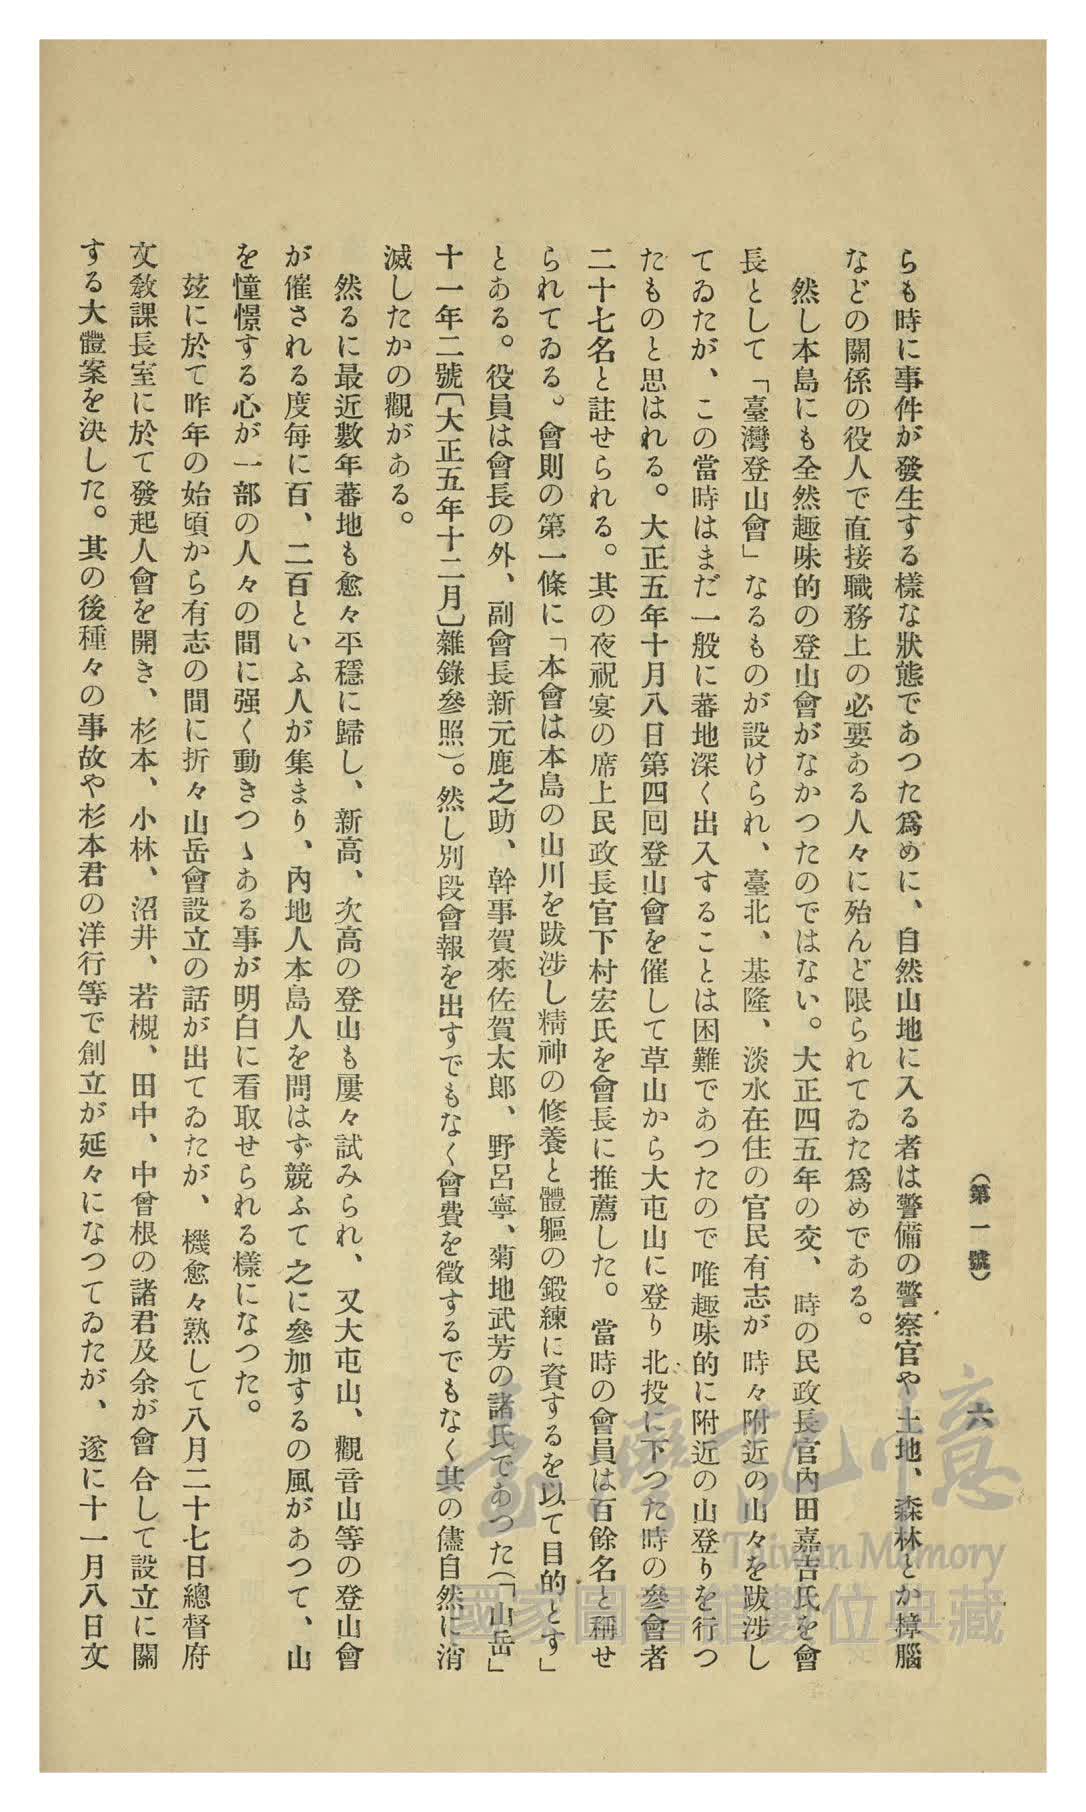 (第一號)
六
らも時に事件が發生する樣な狀態であつた爲めに、自然山地に入る者は警備の警察官や土地、森林とか樟腦
などの關係の役人で直接職務上の必要ある人々に殆んど限られてゐた爲めである。
然し本島にも全然趣味的の登山會がなかつたのではない。大正四五年の交、時の民政長官內田嘉吉氏を會
長として「臺灣登山會」なるものが設けられ、臺北、基隆、淡水在住の官民有志が時々附近の山々を跋涉し
てゐたが、この當時はまだ一般に蕃地深く出入することは困難であつたので唯趣味的に附近の山登りを行つ
たものと思はれる。大正五年十月八日第四回登山會を催して草山から大屯山に登り北投に下つた時の參會者
二十七名と註せられる。其の夜祝宴の席上民政長官下村宏氏を會長に推薦した。當時の會員は百餘名と稱せ
られてゐる。會則の第一條に「本會は本島の山川を跋涉し精神の修養と體軀の鍛練に資するを以て目的とす」
とある。役員は會長の外、副會長新元鹿之助、幹事賀來佐賀太郎、野呂寧、菊地武芳の諸氏であつた(「山岳」
十一年二號〔大正五年十二月〕雜錄參照)。然し別段會報を出すでもなく會費を徵するでもなく其の儘自然に消
滅したかの觀がある。
然るに最近數年蕃地も愈々平穩に歸し、新高、次高の登山も屢々試みられ、又大屯山、觀音山等の登山會
が催される度每に百、二百といふ人が集まり、內地人本島人を問はず競ふて之に參加するの風があつて、山
を憧憬する心が一部の人々の間に强く動きつゝある事が明白に看取せられる樣になつた。
玆に於て昨年の始頃から有志の間に折々山岳會設立の話が出てゐたが、機愈々熟して八月二十七日總督府
文敎課長室に於て發起人會を開き、杉本、小林、沼井、若槻、田中、中曾根の諸君及余が會合して設立に關
する大體案を決した。其の後種々の事故や杉本君の洋行等で創立が延々になつてゐたが、遂に十一月八日文
臺灣記憶
Taiwan Memory
國家圖書館數位典藏